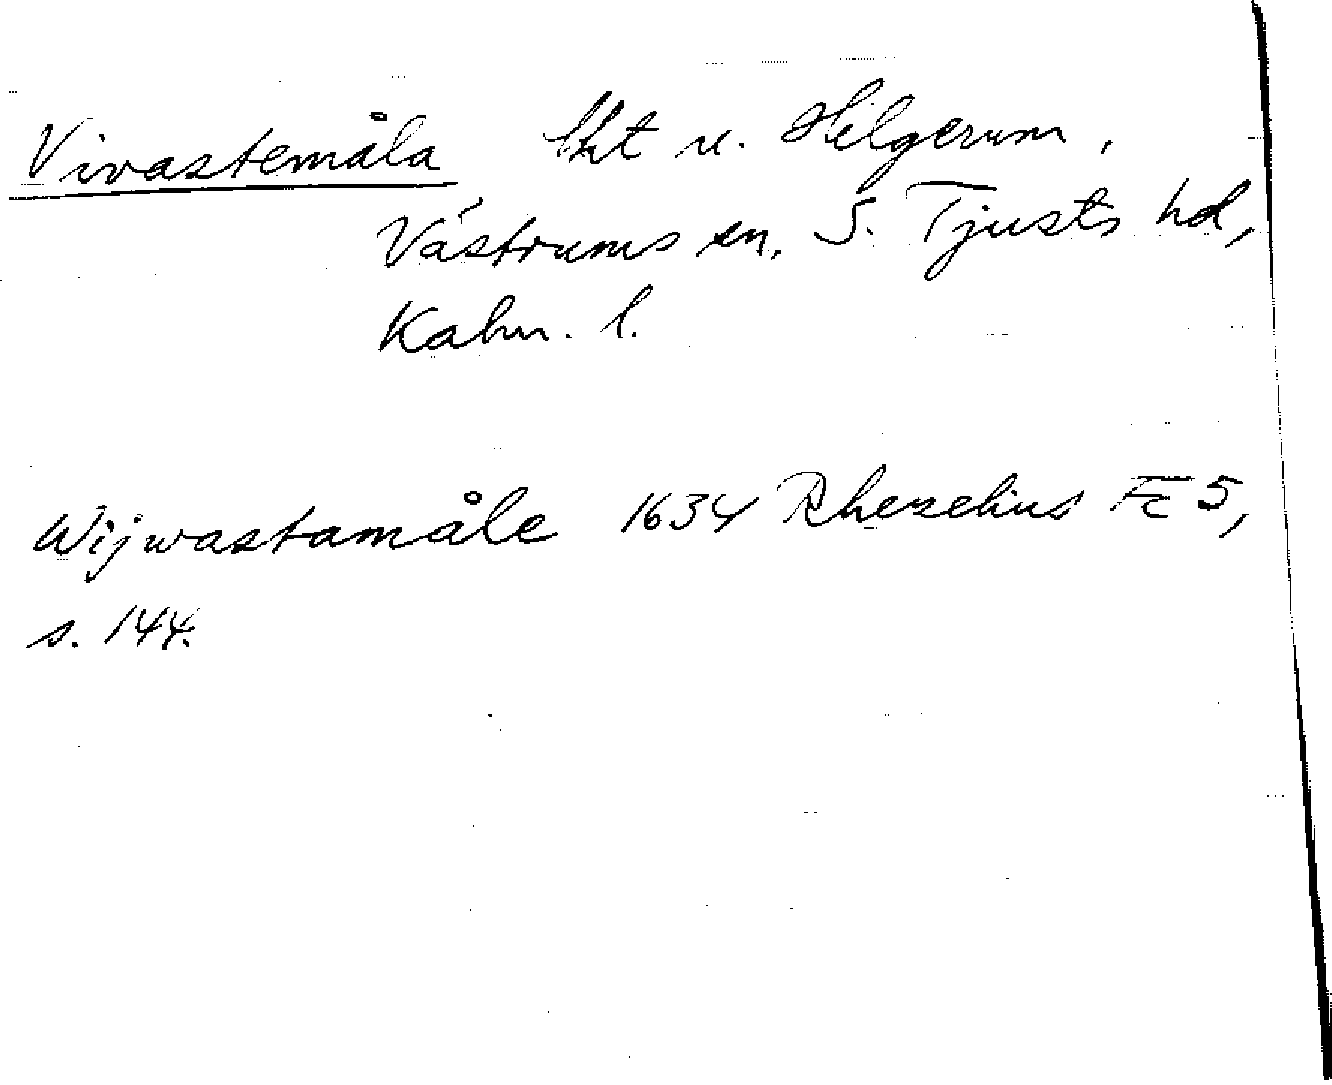 Vivastemåla lht u. Helgerum,
Västrums sn, S. Tjusts hd,
Kalm. l.
Wijwastamåle 1634 Rhezelius Fc 5,
s. 144.